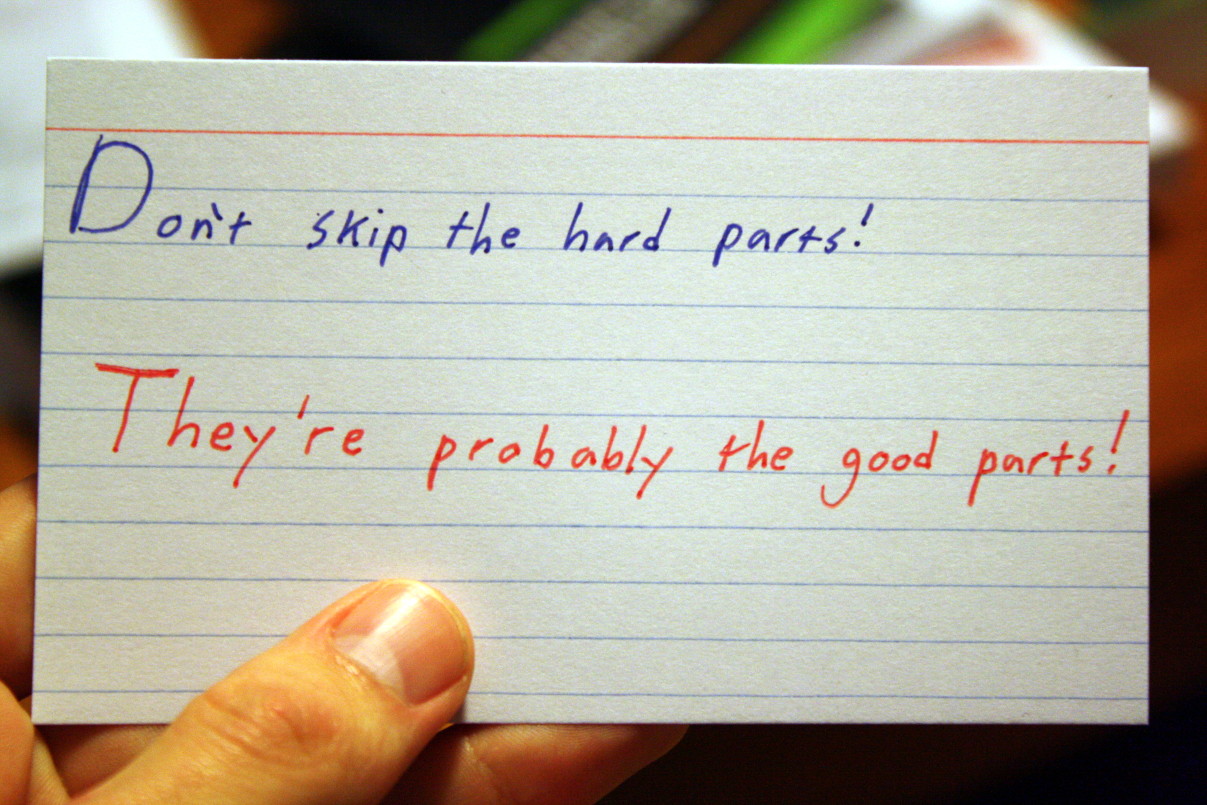 Don't skip the hard parts!
They're probably the good parts!